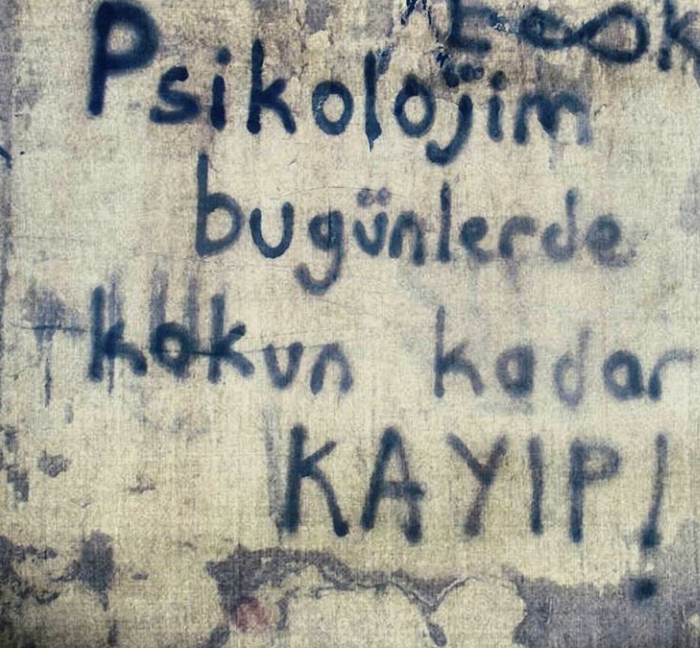 Psikolojim
bugünlerde
kokun kadar
KAYIP!